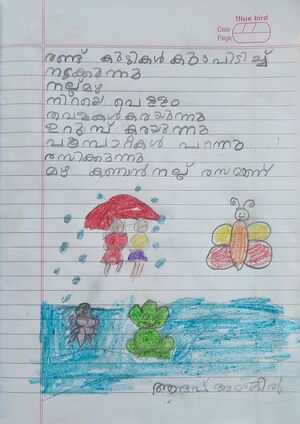 Blue bird
Date
Page
രണ്ട് കുട്ടികൾ കുടപിടിച്ച്
നടക്കുന്നു
നല്ലമഴ
നിറയെ വെള്ളം
തവളകൾകരയുന്നു
ഉറുമ്പ് കരയുന്നു
പൂമ്പാറ്റകൾ പറന്നു
രസിക്കുന്നു
മഴ കാണാൻ നല്ല രസമാണ്